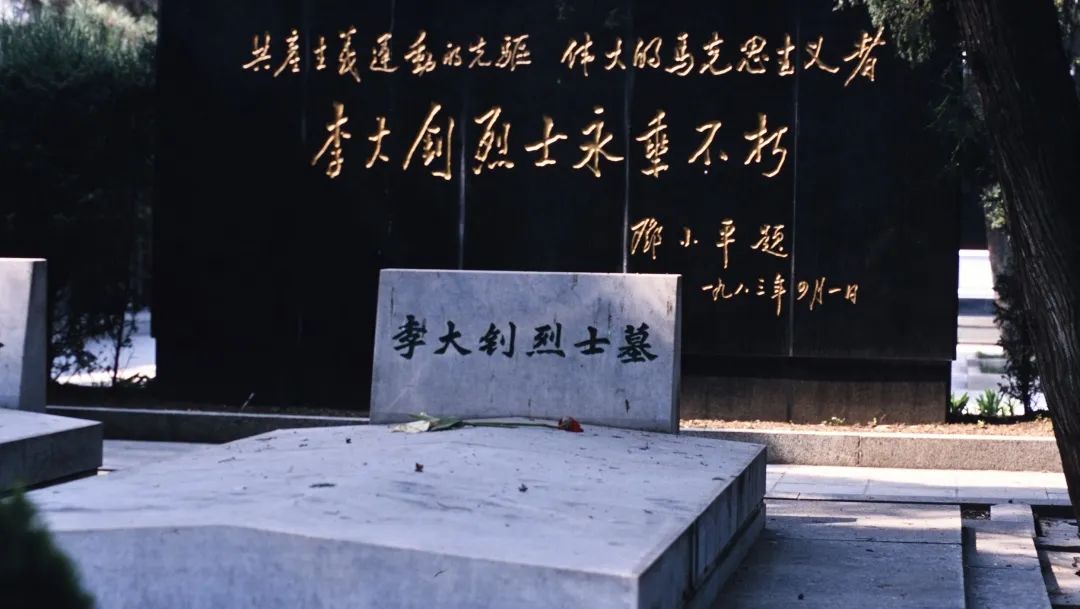 共產主義運動的先驱 伟大的马克思主义者
李大釗烈士永垂不朽
鄧小平題
一九八三年四月一日
李大钊烈士墓